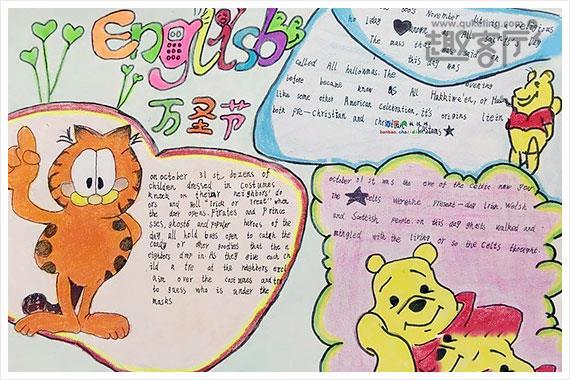 English
万圣节
November All
holy
The mass that was said on
this day was
called All hallowmas. The evening
before became know as All Hakkiwe'en, or
like some other American Celebration, it's origins lie in
both pre-Christian and
on october 31 st, dozens of
children dressed in costumes
knock on their neighbors' do
ors and yell "Trick or Treat" when
the door opens. Pirates and Prince
sses, ghosts and popular heroes of the
day all hold bags open to catch the
candy or other goodies that the n
eighbors drop in. As they give each chi
ld a tre at the neighbors excl
aim over the costumes and try
to guess who is under the
masks
october 31 st was the eve of the Celtic new year
The Celts were the present-day Irish, Welsh
and Scottish people. on this day ghosts walked and
mingled with the living or so the Celts thought.
趣客厅
www.quketing.com